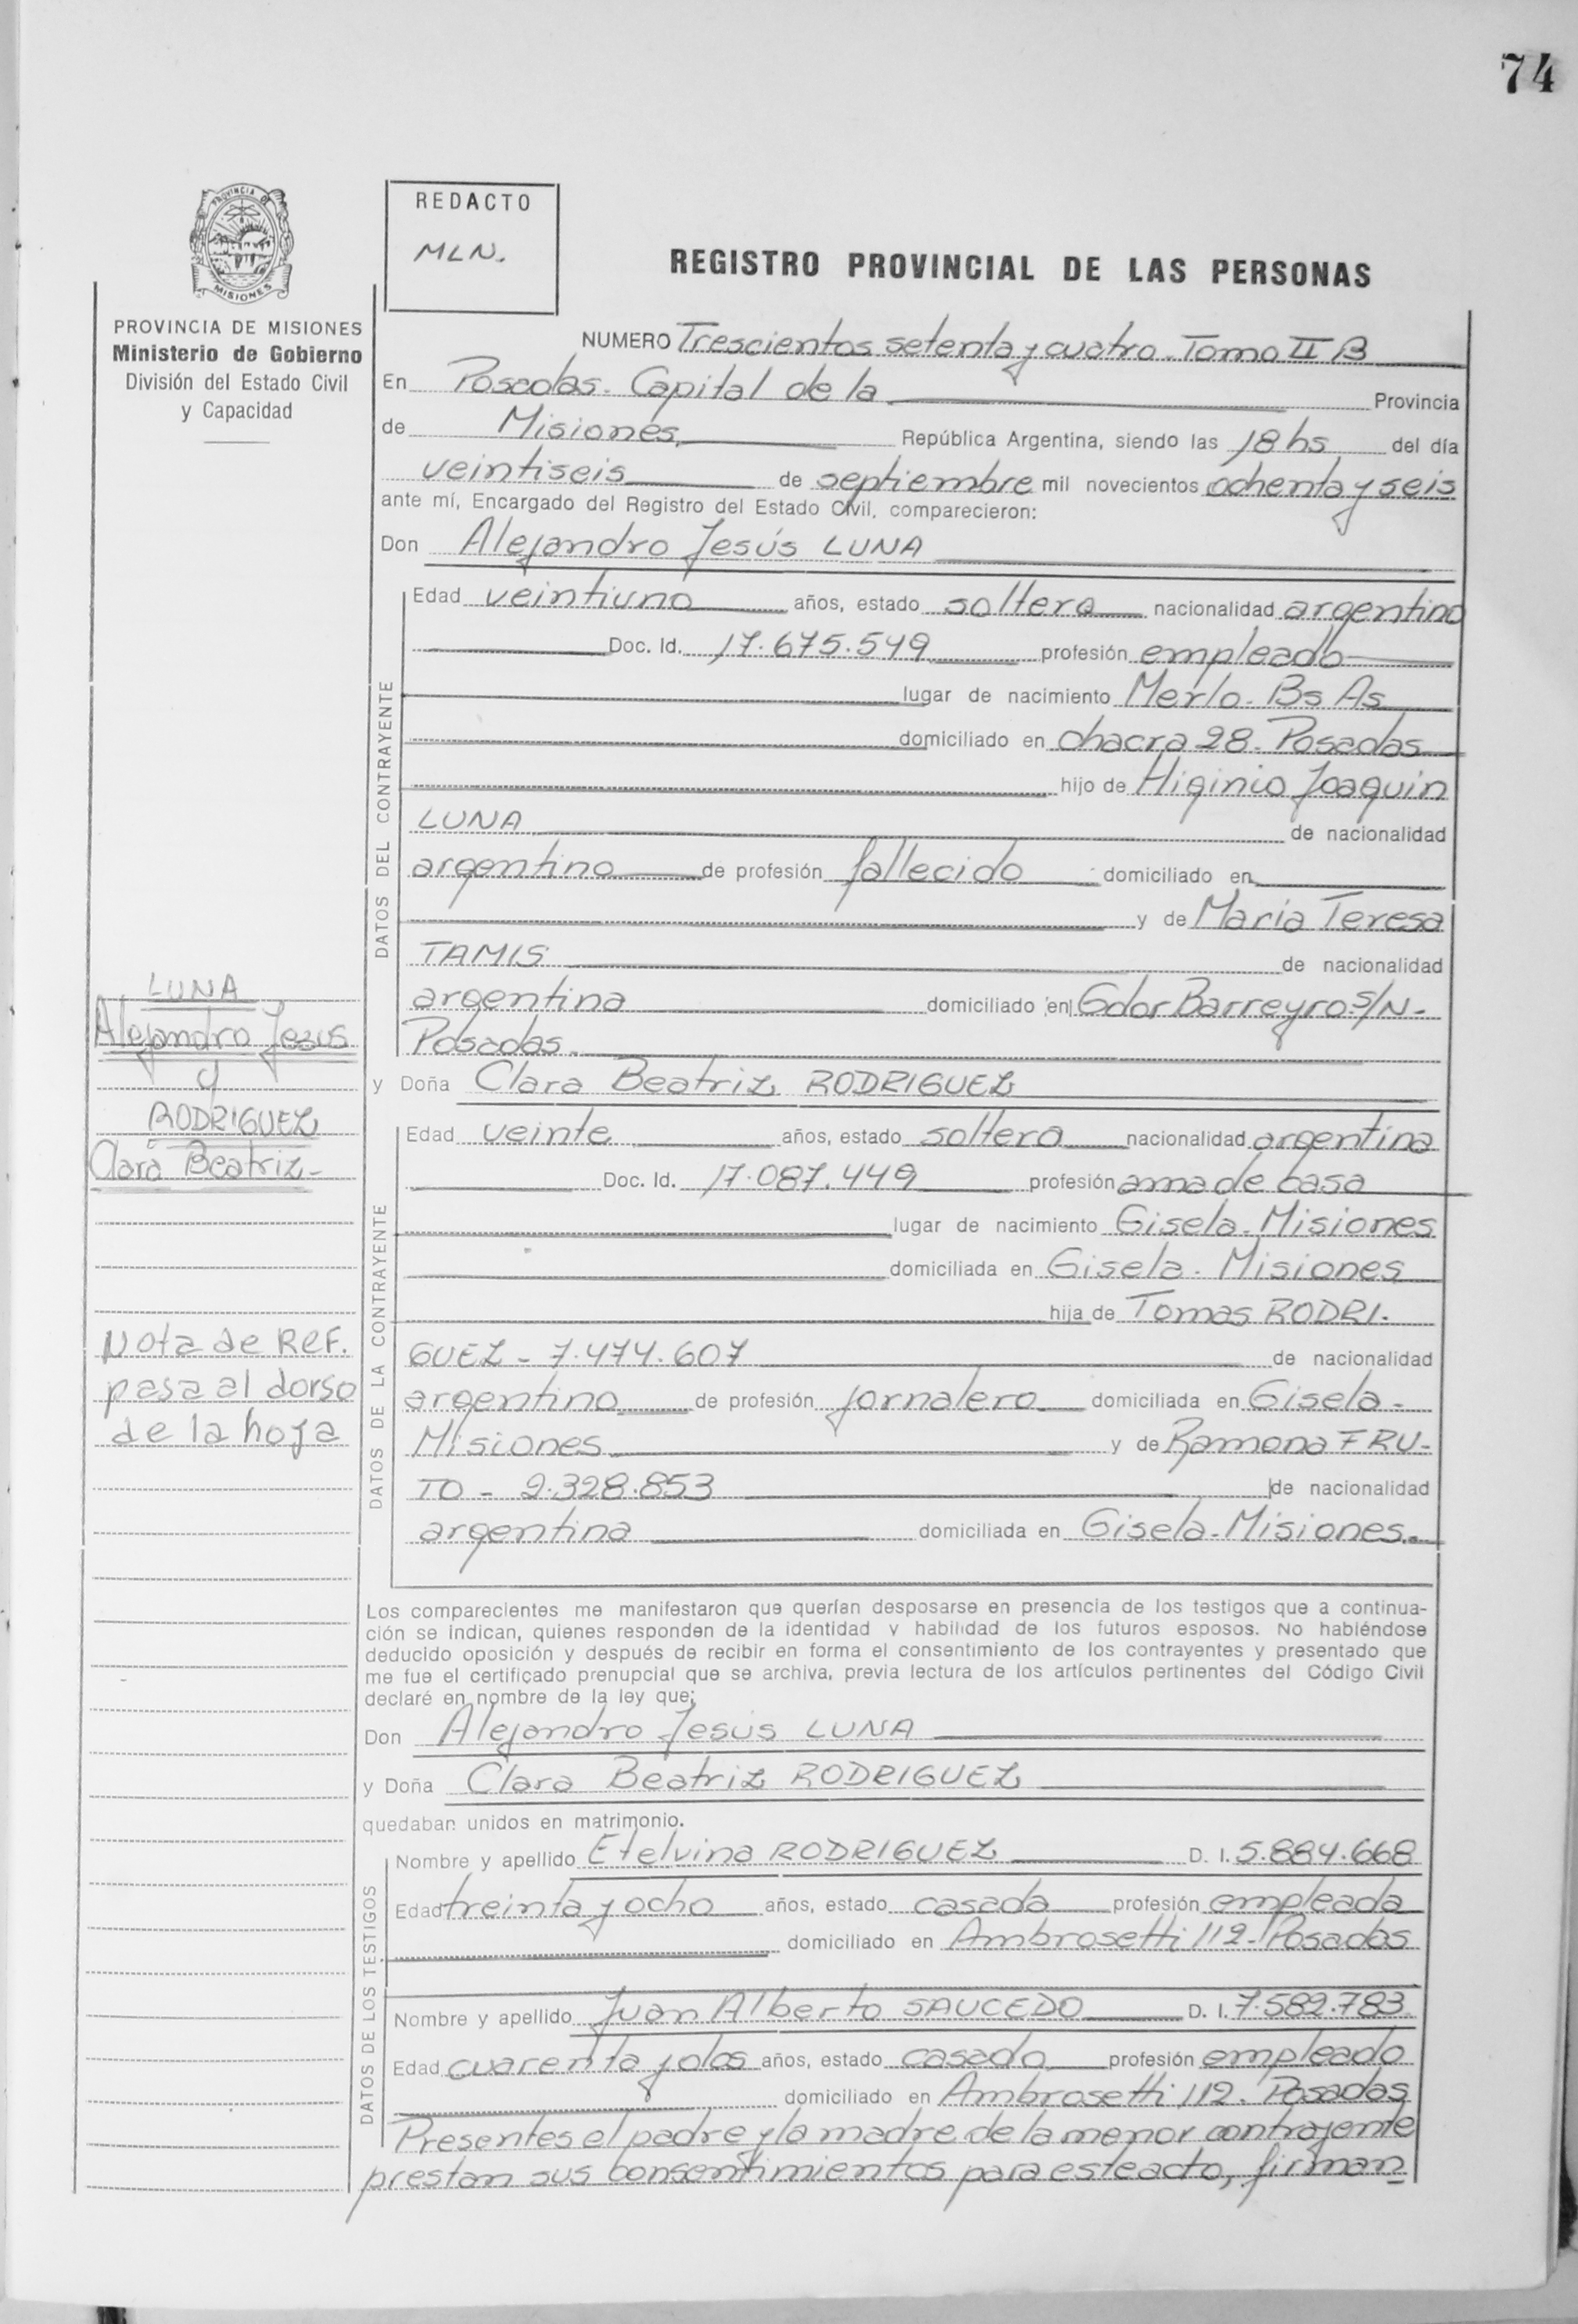 74
PROVINCIA DE
MISIONES
REDACTO
MLN.
REGISTRO PROVINCIAL DE LAS PERSONAS
PROVINCIA DE MISIONES
Ministerio de Gobierno
División del Estado Civil
y Capacidad
NUMERO Trescientos setenta y cuatro. Tomo II B
En Posadas. Capital de la Provincia
de Misiones República Argentina, siendo las 18 hs del día
veintiseis de septiembre mil novecientos ochenta y seis
ante mí, Encargado del Registro del Estado Civil, comparecieron:
Don Alejandro Jesús LUNA
DATOS DEL CONTRAYENTE
Edad veintiuno años, estado soltero nacionalidad argentino
Doc. Id. 17.675.549 profesión empleado
lugar de nacimiento Merlo - Bs As
domiciliado en chacra 28 - Posadas
hijo de Higinio Joaquin
LUNA de nacionalidad
argentino de profesión fallecido domiciliado en
y de Maria Teresa
TAMIS de nacionalidad
argentina domiciliado en Gdor Barreyro S/N -
Posadas.
y Doña Clara Beatriz RODRIGUEZ
LUNA
Alejandro Jesus
y
RODRIGUEZ
Clara Beatriz -
DATOS DE LA CONTRAYENTE
Edad veinte años, estado soltera nacionalidad argentina
Doc. Id. 17.087.449 profesión ama de casa
lugar de nacimiento Gisela - Misiones
domiciliada en Gisela - Misiones
hija de Tomas RODRI-
GUEZ - 7.474.607 de nacionalidad
argentino de profesión jornalero domiciliada en Gisela -
Misiones y de Ramona FRU-
TO - 2.328.853 de nacionalidad
argentina domiciliada en Gisela - Misiones -
Nota de Ref.
pasa al dorso
de la hoja
Los comparecientes me manifestaron que querían desposarse en presencia de los testigos que a continua-
ción se indican, quienes responden de la identidad y habilidad de los futuros esposos. No habiéndose
deducido oposición y después de recibir en forma el consentimiento de los contrayentes y presentado que
me fue el certificado prenupcial que se archiva, previa lectura de los artículos pertinentes del Código Civil
declaré en nombre de la ley que:
Don Alejandro Jesús LUNA
y Doña Clara Beatriz RODRIGUEZ
quedaban unidos en matrimonio.
DATOS DE LOS TESTIGOS
Nombre y apellido Etelvina RODRIGUEZ D. I. 5.884.668
Edad treinta y ocho años, estado casada profesión empleada
domiciliado en Ambrosetti 112 - Posadas
Nombre y apellido Juan Alberto SAUCEDO D. I. 7.582.783
Edad cuarenta y dos años, estado casado profesión empleado
domiciliado en Ambrosetti 112 - Posadas
Presentes el padre y la madre de la menor contrayente
prestan sus consentimientos para este acto, firman